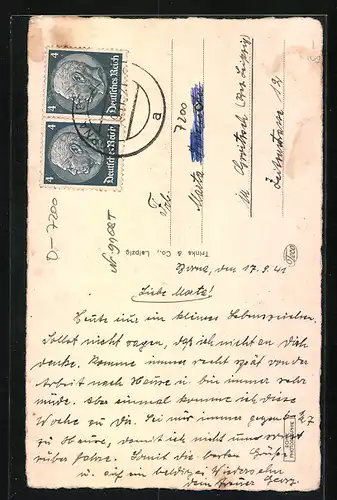 Deutsches Reich
4
Deutsches Reich
4
a
D-7200
7200
Frl.
Marta
in Groitzsch (Bez. Leipzig)
Trinks & Co., Leipzig
Borna, den 17.9.41
Liebe Marta!
Heute nun ein kleines Lebenszeichen.
Sollst nicht sagen, daß ich nicht an Dich
denke. Komme immer recht spät von der
Arbeit nach Hause u. bin immer sehr
müde. Aber einmal komme ich diese
Woche zu Dir. Sei nur immer gegen 1/2 7
zu Hause, damit ich nicht umsonst
rüber fahre. Somit die besten Grüße
u. auf ein baldiges Wiedersehn
dein